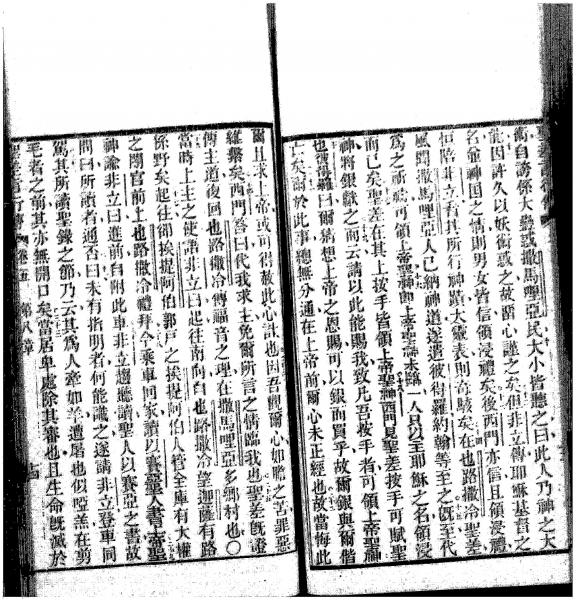 衕自誇係大蠱惑撒馬哩亞民大小皆聽之曰此人乃神之大
能因許久以妖術惑之故留心謹之矣但非立傳耶穌基督之
名並神國之情則男女皆信領浸禮矣後西門亦信且領浸禮
恒陪非立看其所行神蹟大靈表則奇駭矣在也路撒冷聖差
風聞撒馬哩亞人已納神道遂遣彼得羅約翰等至之既至代
爲之祈禱可領上帝聖神卽上帝聖神未臨一人只以主耶穌之名領浸
而已矣聖差在其上按手皆領上帝聖神西門見聖差按手可賦聖
神將銀獻之而云請以此能賜我致凡吾按手者可領上帝聖神
也彼得羅曰爾猜想上帝之恩賜可以銀而買乎故爾銀與爾偕
亡矣爾於此事總無分通在上帝前爾心未正經也故當悔此
爾且求上帝或可得赦此心計也因吾觀爾心如膽之苦罪惡
維繫矣西門答曰代我求主免爾所言之情臨我也聖差旣證
傳主道後回也路撒冷傳福音之理在撒馬哩亞多鄉村也○
當時上主之使諭非立曰起往南向自也路撒冷望迦薩有路
係野矣起往郤挨提阿伯郭戸之挨提阿伯人管全庫有大權
之閹官前上也路撒冷禮拜今乘車回家讀以賽聖人書帝聖
神諭非立曰進前自附此車非立趨聽讀聖人以賽亞之書故
問曰所讀者通否曰未有指明者何能識之遂請非立登車同
焉其所讀聖錄之節乃云其爲人牽如羊遭屠也似啞羔在剪
毛者之前其亦無開口矣當居卑處除其審也且生命旣滅於
卷五 第八章